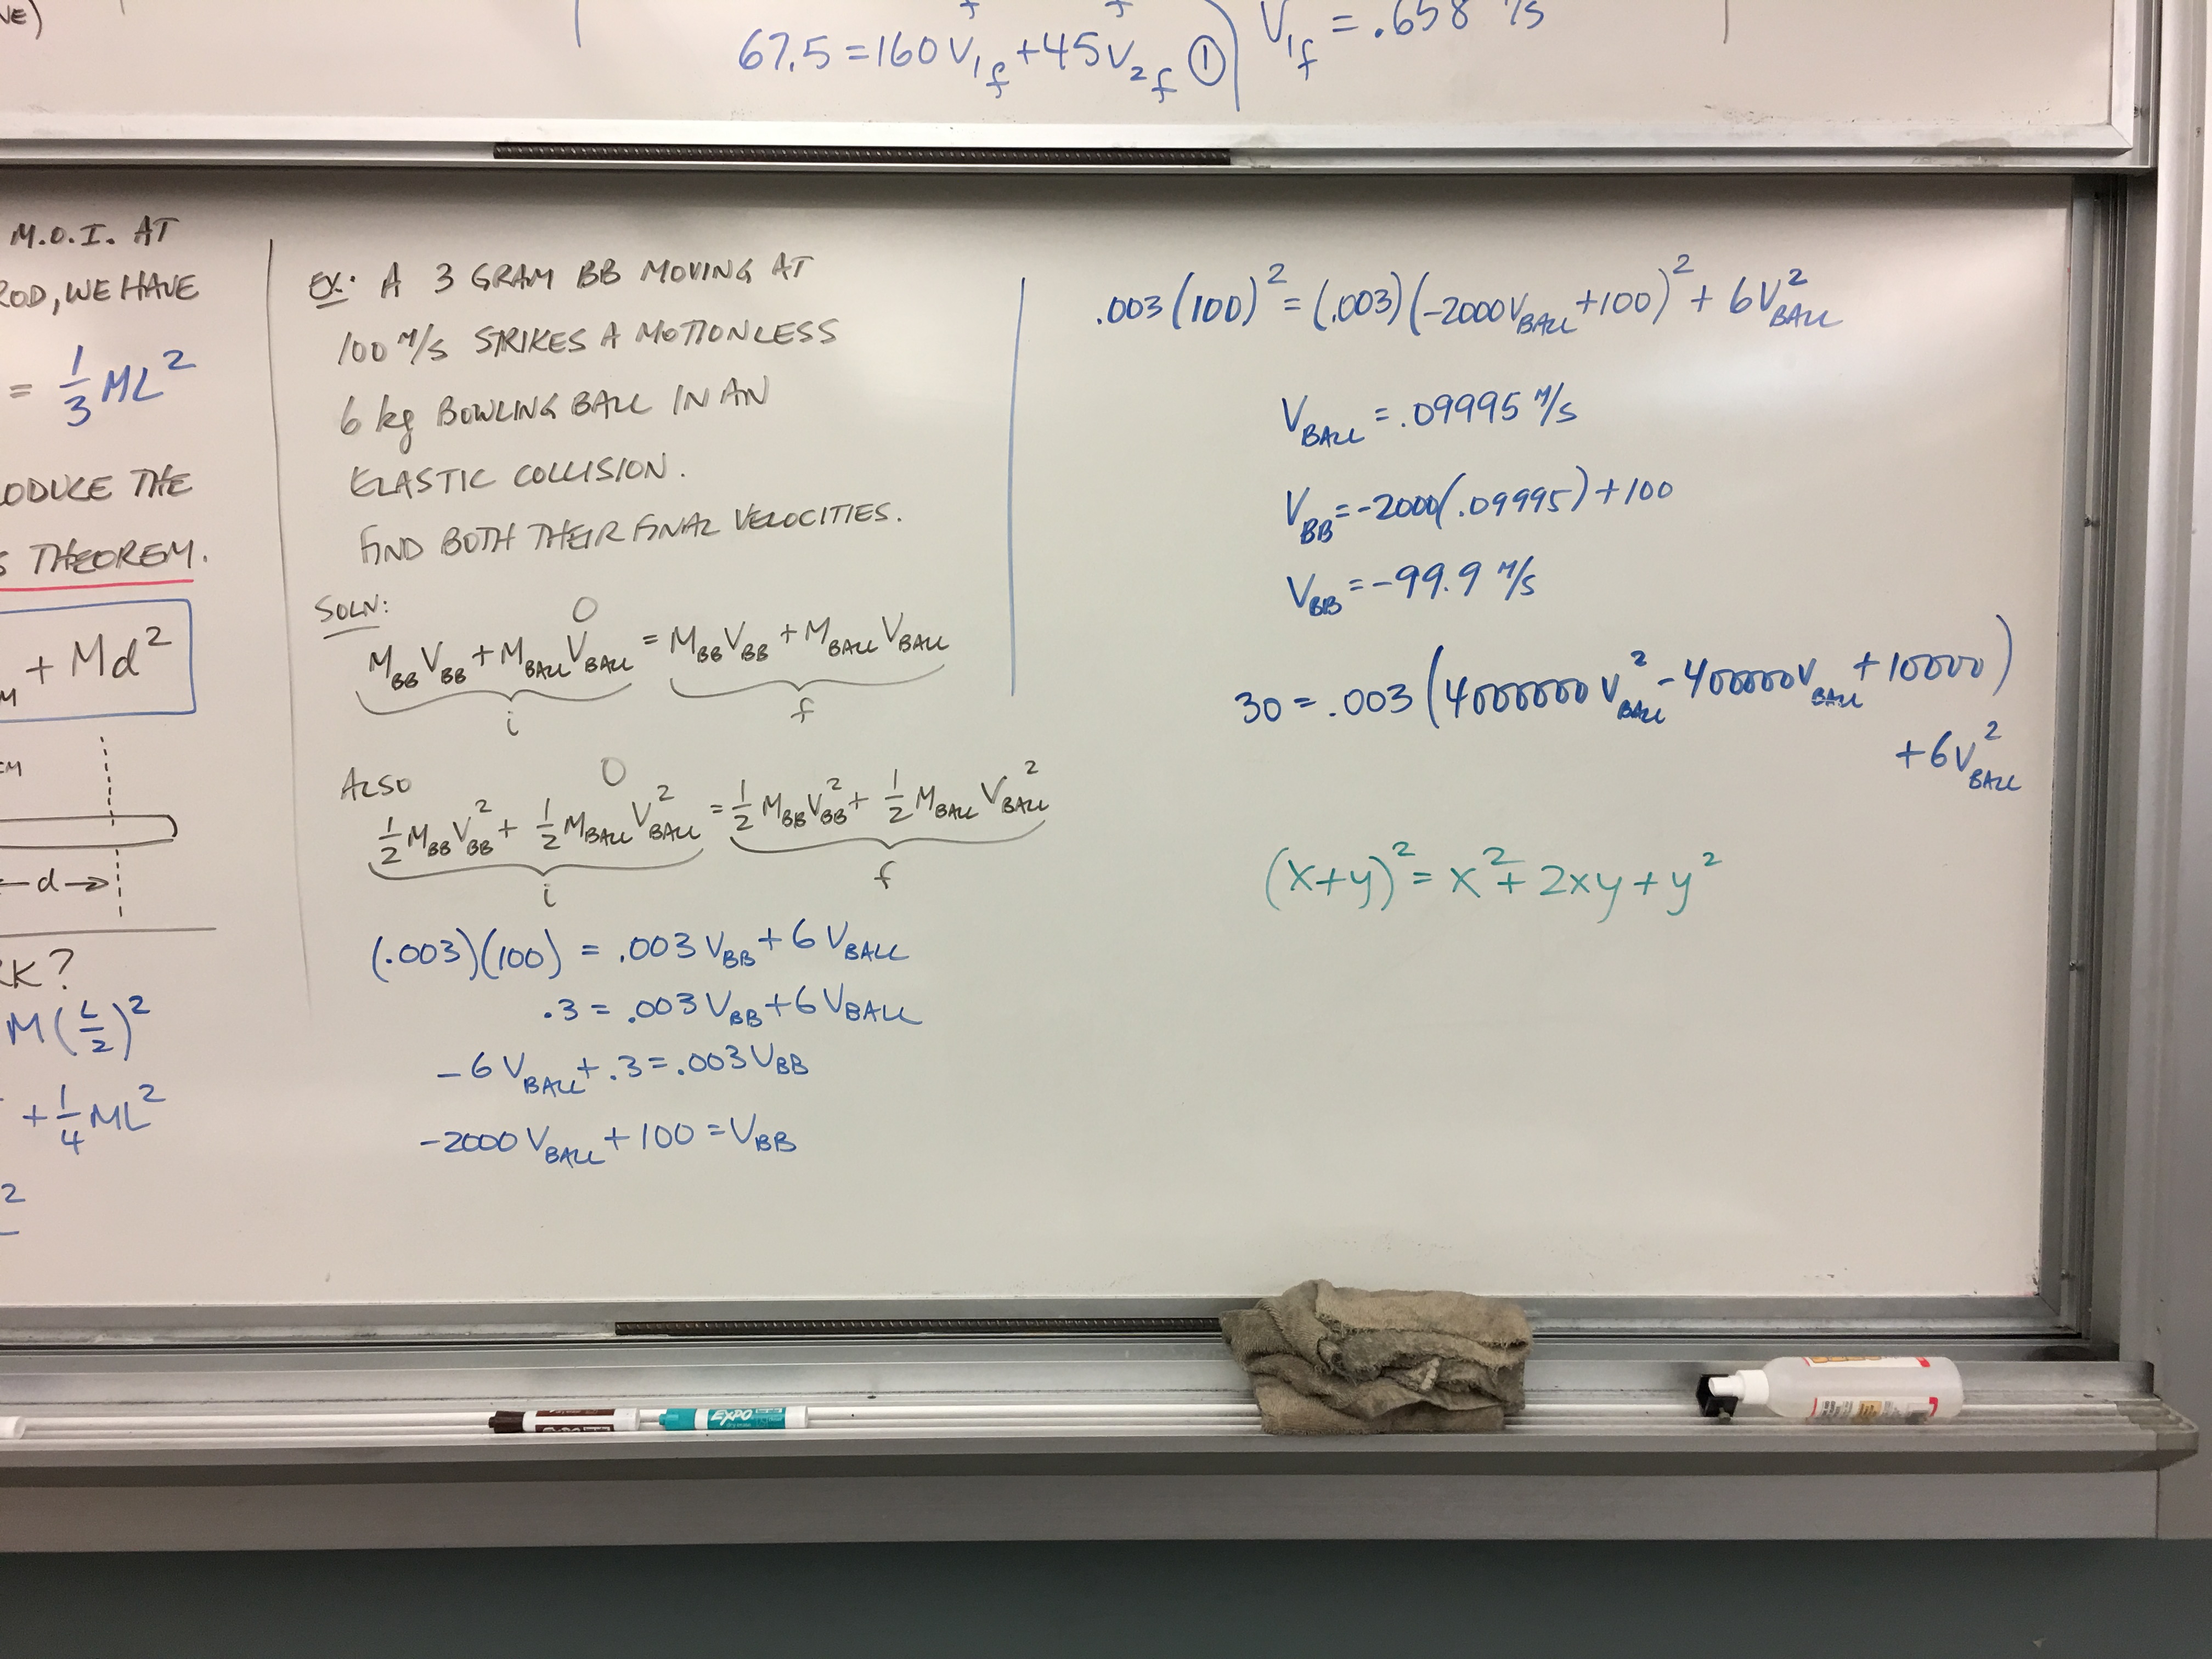 NE)
67.5 = 160 V₁f + 45 V₂f ①
V₁f = .658 m/s
M.O.I. AT
ROD, WE HAVE
= 1/3 ML²
ODUCE THE
S THEOREM.
+ Md²
CM
d
RK?
M(L/2)²
+ 1/4 ML²
2
EX: A 3 GRAM BB MOVING AT
100 M/S STRIKES A MOTIONLESS
6 kg BOWLING BALL IN AN
ELASTIC COLLISION.
FIND BOTH THEIR FINAL VELOCITIES.
SOLN:
0
M_BB V_BB + M_BALL V_BALL = M_BB V_BB + M_BALL V_BALL
i f
ALSO 0
1/2 M_BB V_BB² + 1/2 M_BALL V_BALL² = 1/2 M_BB V_BB² + 1/2 M_BALL V_BALL²
i f
(.003)(100) = .003 V_BB + 6 V_BALL
.3 = .003 V_BB + 6 V_BALL
-6 V_BALL + .3 = .003 V_BB
-2000 V_BALL + 100 = V_BB
.003 (100)² = (.003)(-2000 V_BALL + 100)² + 6 V_BALL²
V_BALL = .09995 M/S
V_BB = -2000(.09995) + 100
V_BB = -99.9 M/S
30 = .003 (4000000 V_BALL² - 400000 V_BALL + 10000)
+ 6 V_BALL²
(x+y)² = x² + 2xy + y²
EXPO
EXPO